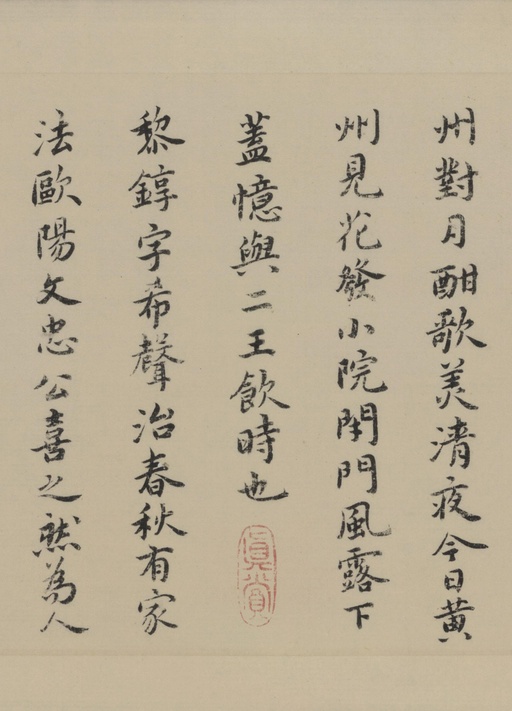 州對月酣歌美清夜今日黄
州見花發小院閉門風露下
蓋憶與二王飲時也
真賞
黎錞字希聲治春秋有家
法歐陽文忠公喜之然為人